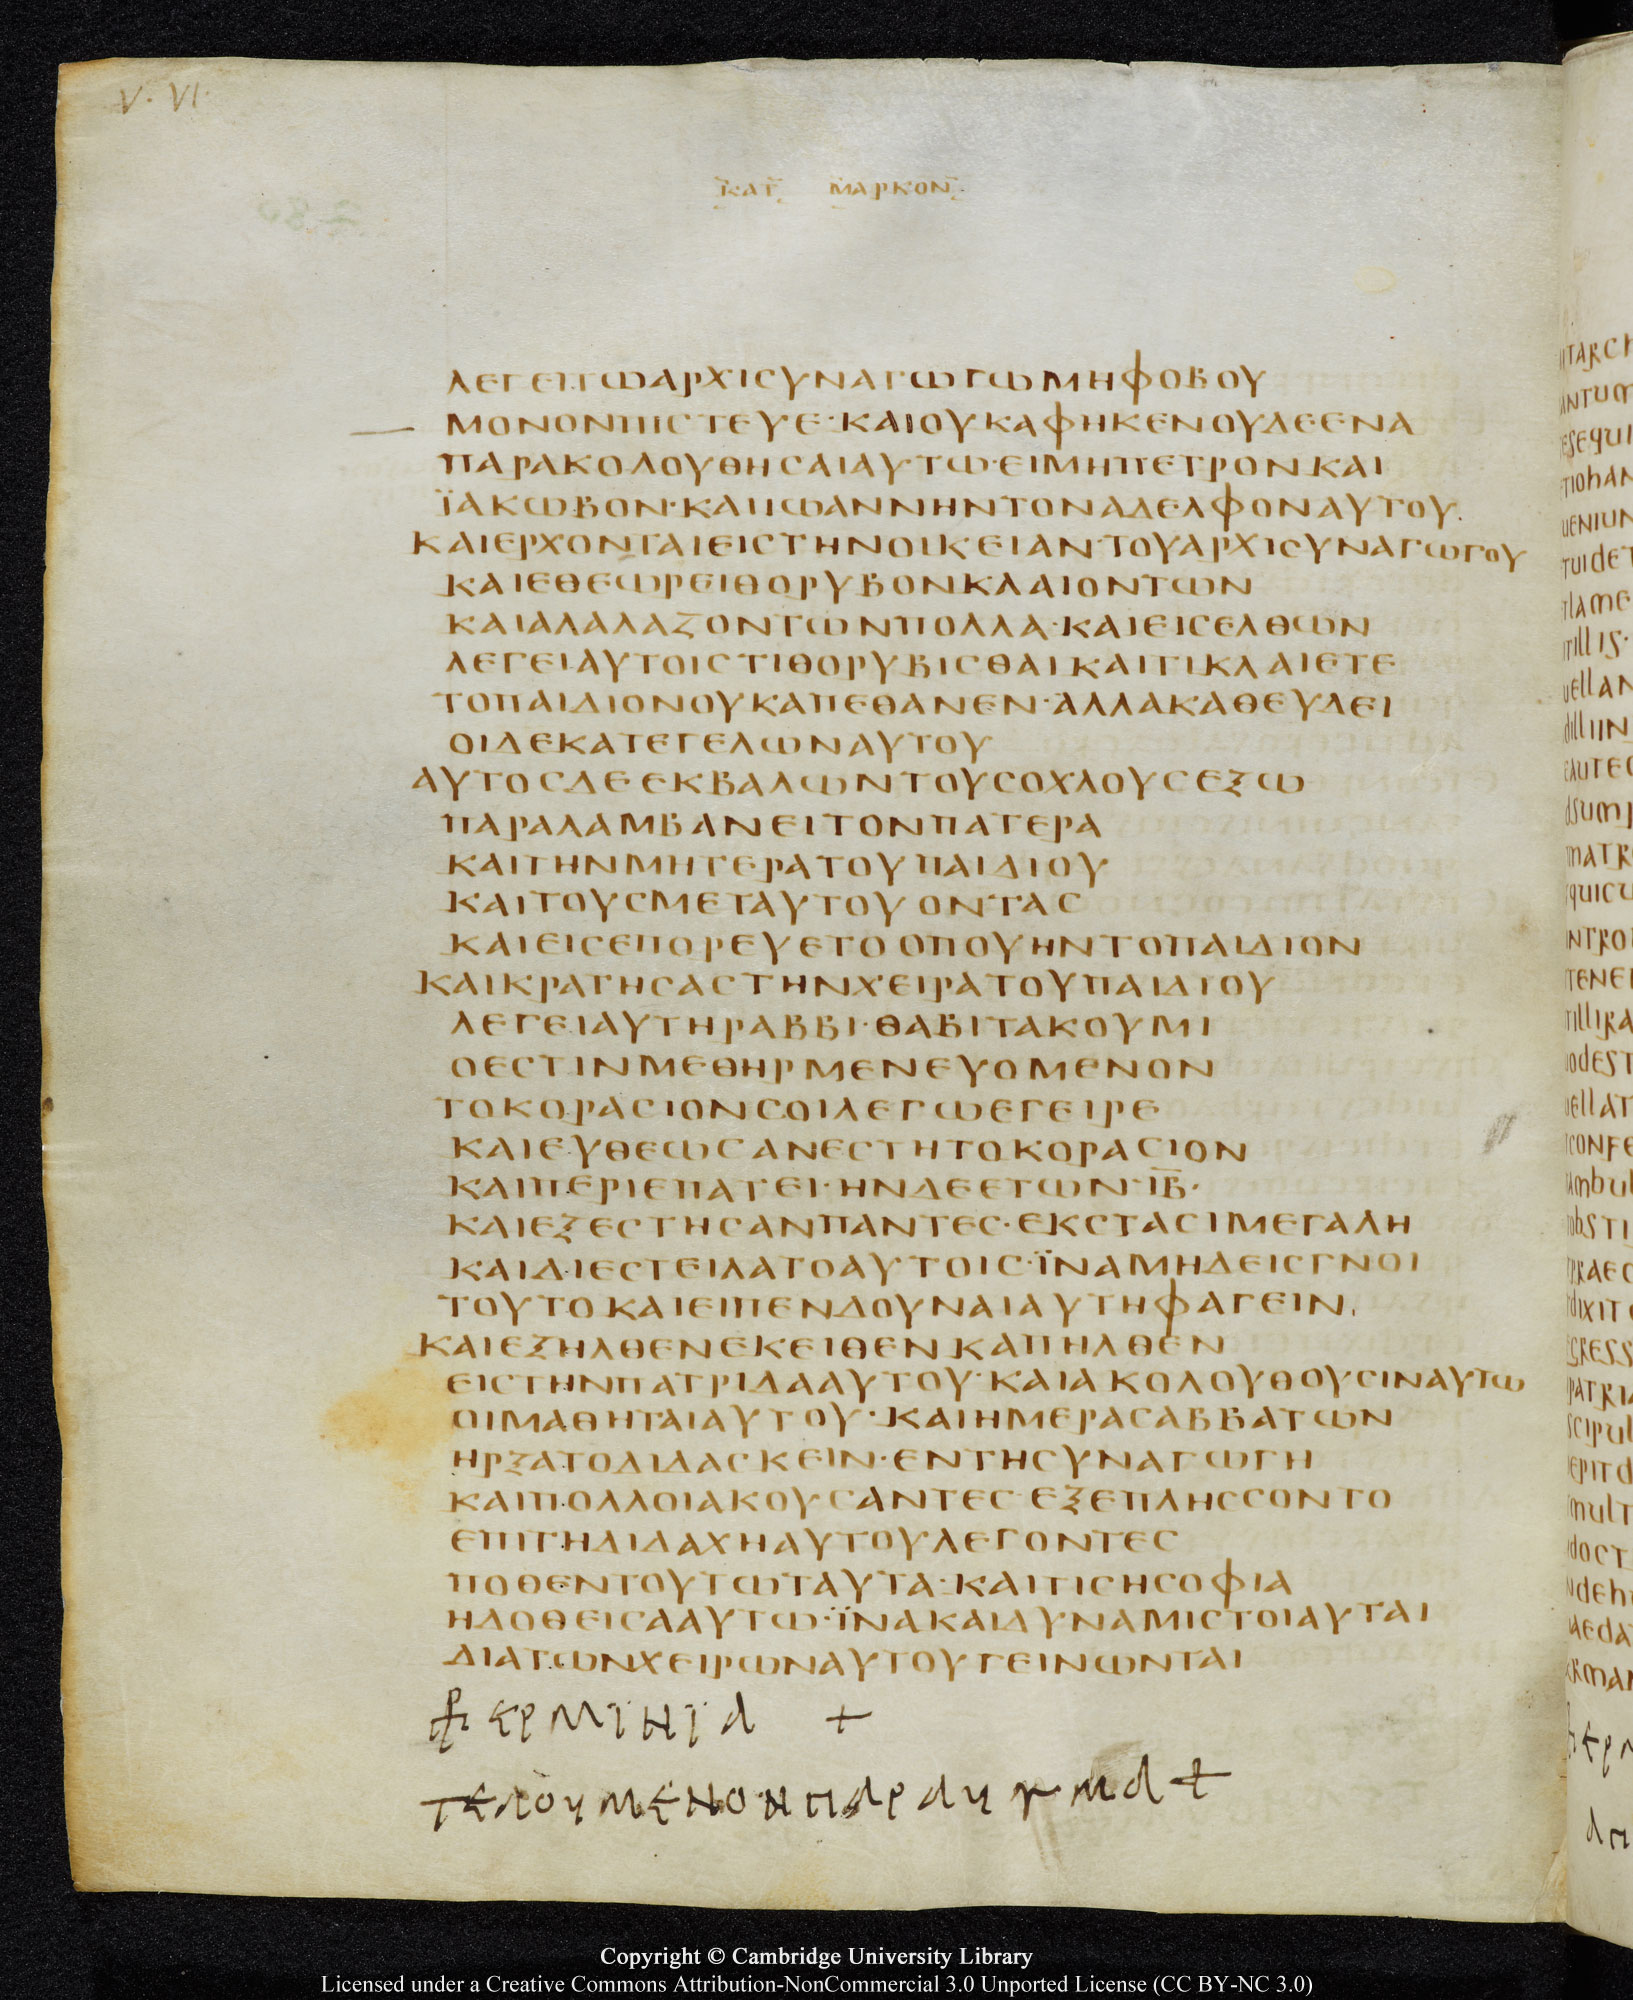 V·VI·
ΚΑΤ ΜΑΡΚΟΝ·
ΛΕΓΕΙΤΩΑΡΧΙCΥΝΑΓΩΓΩΜΗΦΟΒΟΥ
ΜΟΝΟΝΠΙCΤΕΥΕ·ΚΑΙΟΥΚΑΦΗΚΕΝΟΥΔΕΕΝΑ
ΠΑΡΑΚΟΛΟΥΘΗCΑΙΑΥΤΩ·ΕΙΜΗΠΕΤΡΟΝΚΑΙ
ΪΑΚΩΒΟΝ·ΚΑΙΙΩΑΝΝΗΝΤΟΝΑΔΕΛΦΟΝΑΥΤΟΥ.
ΚΑΙΕΡΧΟΝΤΑΙΕΙCΤΗΝΟΙΚΕΙΑΝ·ΤΟΥΑΡΧΙCΥΝΑΓΩΓΟΥ
ΚΑΙΕΘΕΩΡΕΙΘΟΡΥΒΟΝΚΛΑΙΟΝΤΩΝ
ΚΑΙΑΛΑΛΑΖΟΝΤΩΝΠΟΛΛΑ·ΚΑΙΕΙCΕΛΘΩΝ
ΛΕΓΕΙΑΥΤΟΙCΤΙΘΟΡΥΒΙCΘΑΙΚΑΙΤΙΚΛΑΙΕΤΕ
ΤΟΠΑΙΔΙΟΝΟΥΚΑΠΕΘΑΝΕΝ·ΑΛΛΑΚΑΘΕΥΔΕΙ
ΟΙΔΕΚΑΤΕΓΕΛΩΝΑΥΤΟΥ
ΑΥΤΟCΔΕΕΚΒΑΛΩΝΤΟΥCΟΧΛΟΥCΕΞΩ
ΠΑΡΑΛΑΜΒΑΝΕΙΤΟΝΠΑΤΕΡΑ
ΚΑΙΤΗΝΜΗΤΕΡΑΤΟΥΠΑΙΔΙΟΥ
ΚΑΙΤΟΥCΜΕΤΑΥΤΟΥΟΝΤΑC
ΚΑΙΕΙCΕΠΟΡΕΥΕΤΟΟΠΟΥΗΝΤΟΠΑΙΔΙΟΝ
ΚΑΙΚΡΑΤΗCΑCΤΗΝΧΕΙΡΑΤΟΥΠΑΙΔΙΟΥ
ΛΕΓΕΙΑΥΤΗΡΑΒΒΙ·ΘΑΒΙΤΑΚΟΥΜΙ
ΟΕCΤΙΝΜΕΘΗΡΜΕΝΕΥΟΜΕΝΟΝ
ΤΟΚΟΡΑCΙΟΝCΟΙΛΕΓΩΕΓΕΙΡΕ
ΚΑΙΕΥΘΕΩCΑΝΕCΤΗΤΟΚΟΡΑCΙΟΝ
ΚΑΙΠΕΡΙΕΠΑΤΕΙ·ΗΝΔΕΕΤΩΝ·ΙΒ·
ΚΑΙΕΞΕCΤΗCΑΝΠΑΝΤΕC·ΕΚCΤΑCΙΜΕΓΑΛΗ
ΚΑΙΔΙΕCΤΕΙΛΑΤΟΑΥΤΟΙC·ΪΝΑΜΗΔΕΙCΓΝΟΙ
ΤΟΥΤΟΚΑΙΕΙΠΕΝΔΟΥΝΑΙΑΥΤΗΦΑΓΕΙΝ.
ΚΑΙΕΞΗΛΘΕΝΕΚΕΙΘΕΝΚΑΠΗΛΘΕΝ
ΕΙCΤΗΝΠΑΤΡΙΔΑΑΥΤΟΥ·ΚΑΙΑΚΟΛΟΥΘΟΥCΙΝΑΥΤΩ
ΟΙΜΑΘΗΤΑΙΑΥΤΟΥ·ΚΑΙΗΜΕΡΑCΑΒΒΑΤΩΝ
ΗΡΞΑΤΟΔΙΔΑCΚΕΙΝ·ΕΝΤΗCΥΝΑΓΩΓΗ
ΚΑΙΠΟΛΛΟΙΑΚΟΥCΑΝΤΕC·ΕΞΕΠΛΗCCΟΝΤΟ
ΕΠΙΤΗΔΙΔΑΧΗΑΥΤΟΥΛΕΓΟΝΤΕC
ΠΟΘΕΝΤΟΥΤΩΤΑΥΤΑ·ΚΑΙΤΙCΗCΟΦΙΑ
ΗΔΟΘΕΙCΑΑΥΤΩ·ΪΝΑΚΑΙΔΥΝΑΜΙCΤΟΙΑΥΤΑΙ
ΔΙΑΤΩΝΧΕΙΡΩΝΑΥΤΟΥΓΕΙΝΩΝΤΑΙ
ΕΡΜΪΗΪΑ +
ΤΕΛΟΥΜΕΝΟΝΠΑΡΑ
Copyright © Cambridge University Library
Licensed under a Creative Commons Attribution-NonCommercial 3.0 Unported License (CC BY-NC 3.0)